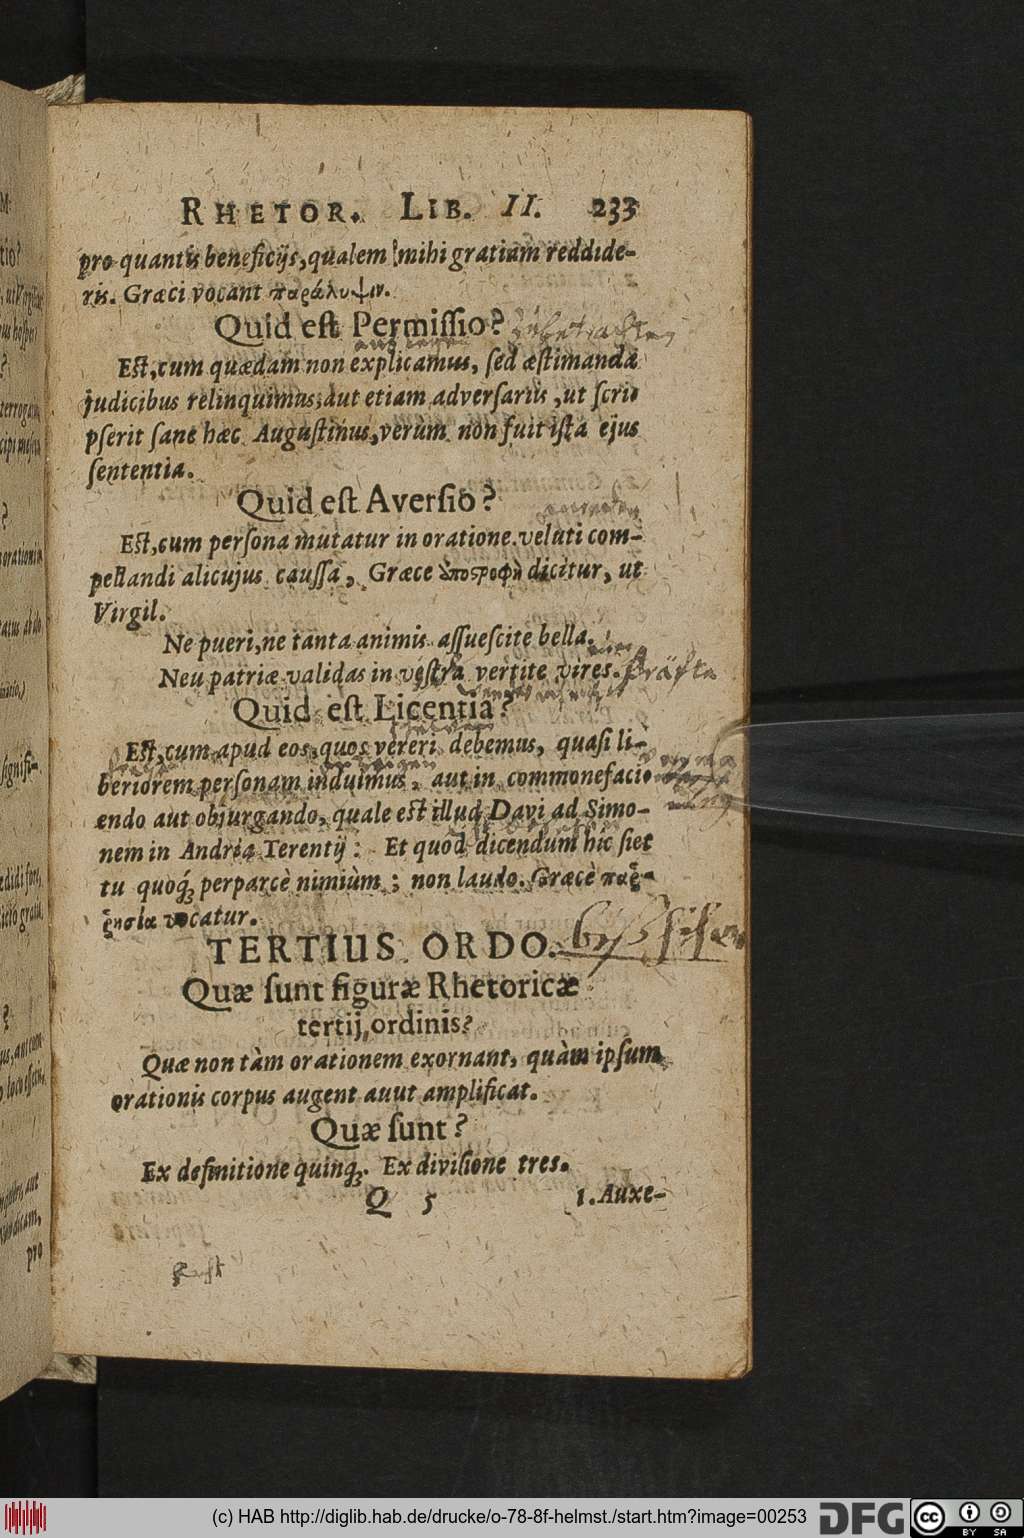 RHETOR. LIB. II. 233
pro quantis beneficijs, qualem mihi gratiam reddide-
ris. Græci vocant παράλυψιν.
Quid est Permissio?
Est, cum quædam non explicamus, sed æstimanda
judicibus relinquimus, aut etiam adversariis, ut scri-
pserit sane hæc Augustinus, verùm non fuit ista ejus
sententia.
Quid est Aversio?
Est, cum persona mutatur in oratione. veluti com-
pellandi alicujus caussa, Græce ἀποςροφὴ dicitur, ut
Virgil.
Ne pueri, ne tanta animis assuescite bella.
Neu patriæ validas in vestra vertite vires. Kräfte
Quid est Licentia?
Est, cum apud eos, quos vereri debemus, quasi li-
beriorem personam induimus, aut in commonefaci-
endo aut objurgando, quale est illud Davi ad Simo-
nem in Andria Terentij: Et quod dicendum hic siet
tu quoq́; perparcè nimiùm; non laudo. Græcè παῤ-
ῥησία vocatur.
TERTIUS ORDO.
Quæ sunt figuræ Rhetoricæ
tertij, ordinis?
Quæ non tàm orationem exornant, quàm ipsum
orationis corpus augent auut amplificat.
Quæ sunt?
Ex definitione quinq́;. Ex divisione tres.
Q 5 1. Auxe-
(c) HAB http://diglib.hab.de/drucke/o-78-8f-helmst./start.htm?image=00253
DFG
cc BY SA